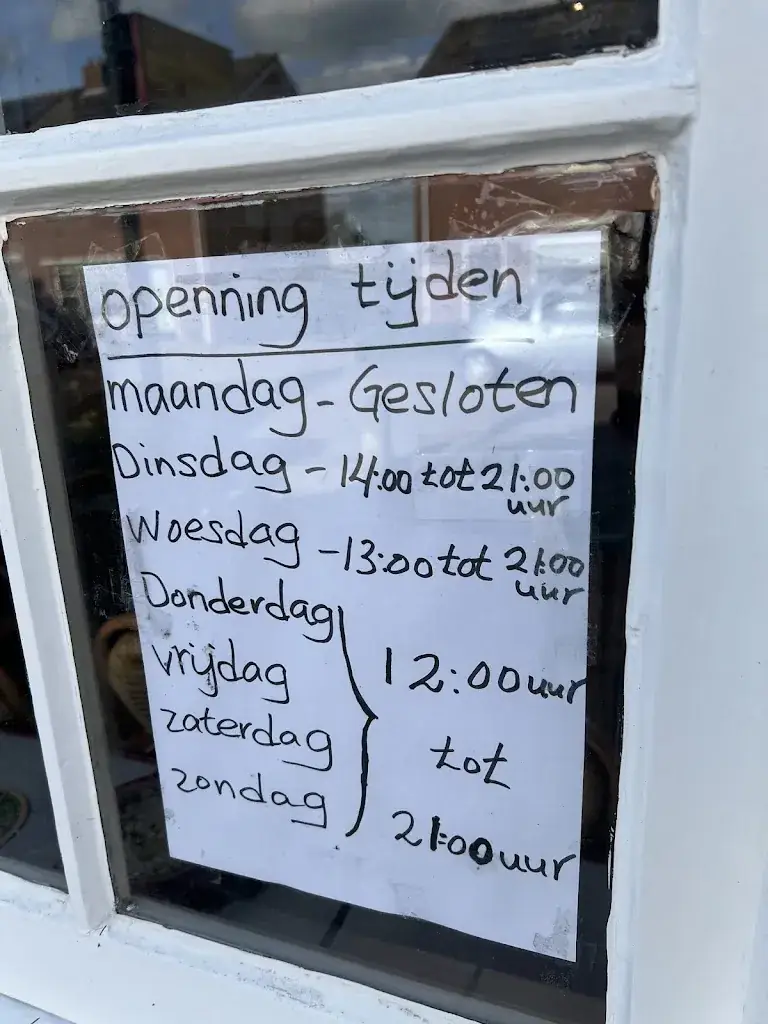 openning tijden
maandag - Gesloten
Dinsdag - 14:00 tot 21:00
uur
Woesdag - 13:00 tot 21:00
uur
Donderdag
vrijdag
zaterdag
zondag
12:00 uur
tot
21:00 uur